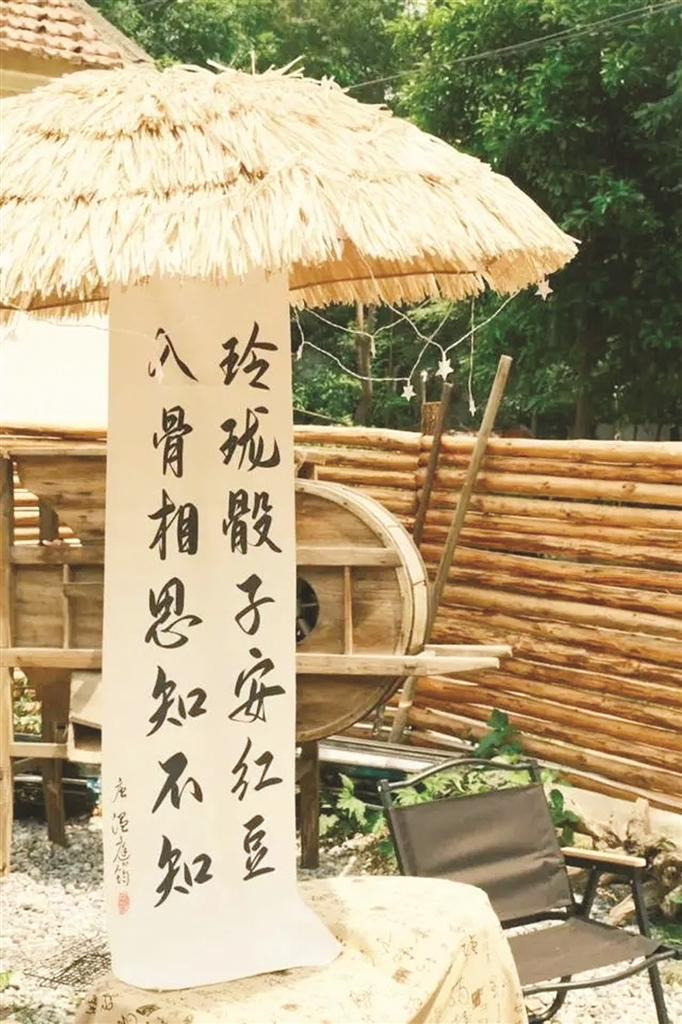 玲珑骰子安红豆
入骨相思知不知
唐温庭筠